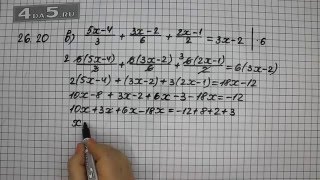 4DA5.RU
26.20 в) (5x-4)/3 + (3x-2)/6 + (2x-1)/2 = 3x-2 | ·6
2 6(5x-4)/3 + 6(3x-2)/6 + 3 6(2x-1)/2 = 6(3x-2)
2(5x-4) + (3x-2) + 3(2x-1) = 18x-12
10x-8 + 3x-2 + 6x-3 - 18x = -12
10x + 3x + 6x - 18x = -12 + 8 + 2 + 3
x